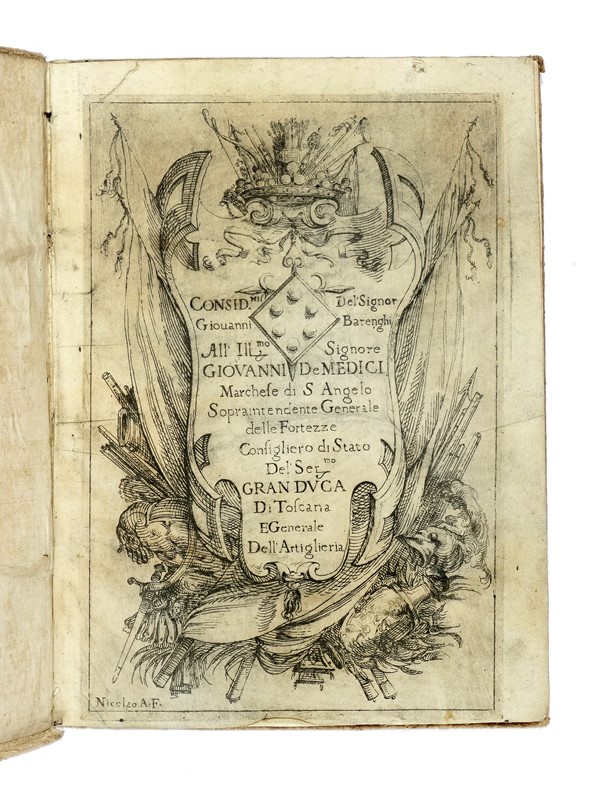 CONSID.NI Del Signor
Giovanni Barenghi
All' Ill.mo Signore
GIOVANNI De MEDICI
Marchese di S Angelo
Sopraintendente Generale
delle Fortezze
Consigliero di Stato
Del Ser.mo
GRAN DVCA
Di Toscana
E Generale
Dell'Artiglieria
A.F.